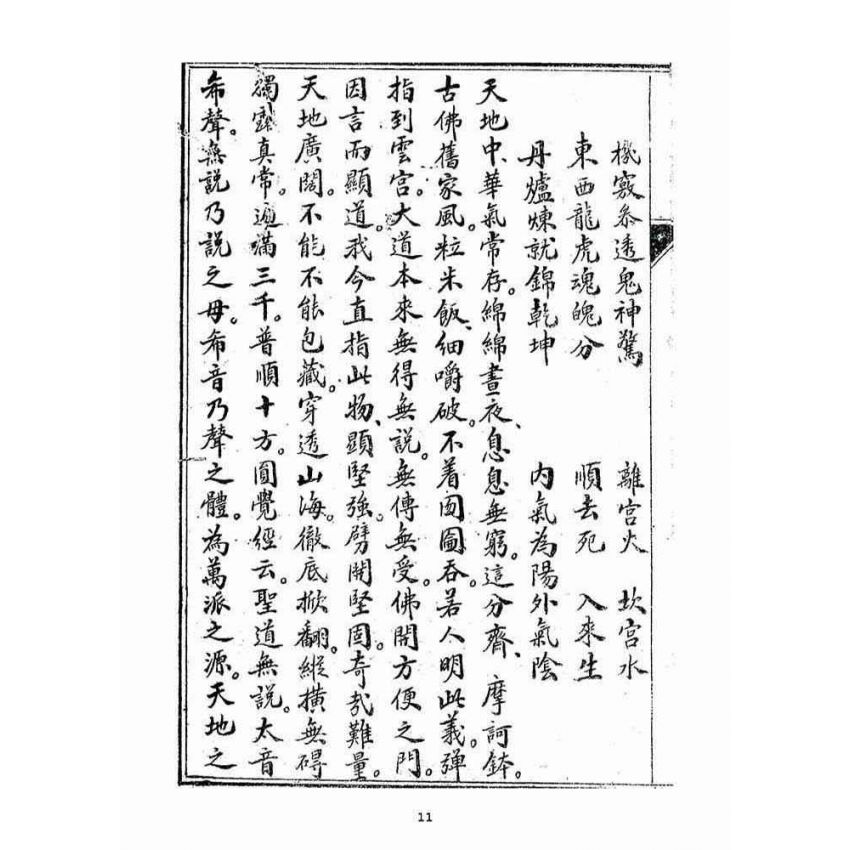 機竅參透鬼神驚 離宮火 坎宮水
東西龍虎魂魄分 順去死 入來生
丹爐煉就錦乾坤 內氣為陽外氣陰
天地中、華氣常存。綿綿晝夜、息息無窮。這分齊、摩訶鉢。
古佛舊家風。粒米飯、細嚼破。不着囫圇吞。若人明此義。彈
指到雲宮。大道本來無得無說。無傳無受。佛開方便之門。
因言而顯道。我今直指此物、顯堅強。劈開堅固。奇哉難量。
天地廣闊。不能不能包藏。穿透山海。徹底掀翻。縱橫無碍
獨露真常。遍滿三千。普順十方。圓覺經云。聖道無說。太音
希聲。無說乃說之母。希音乃聲之體。為萬派之源。天地之
11